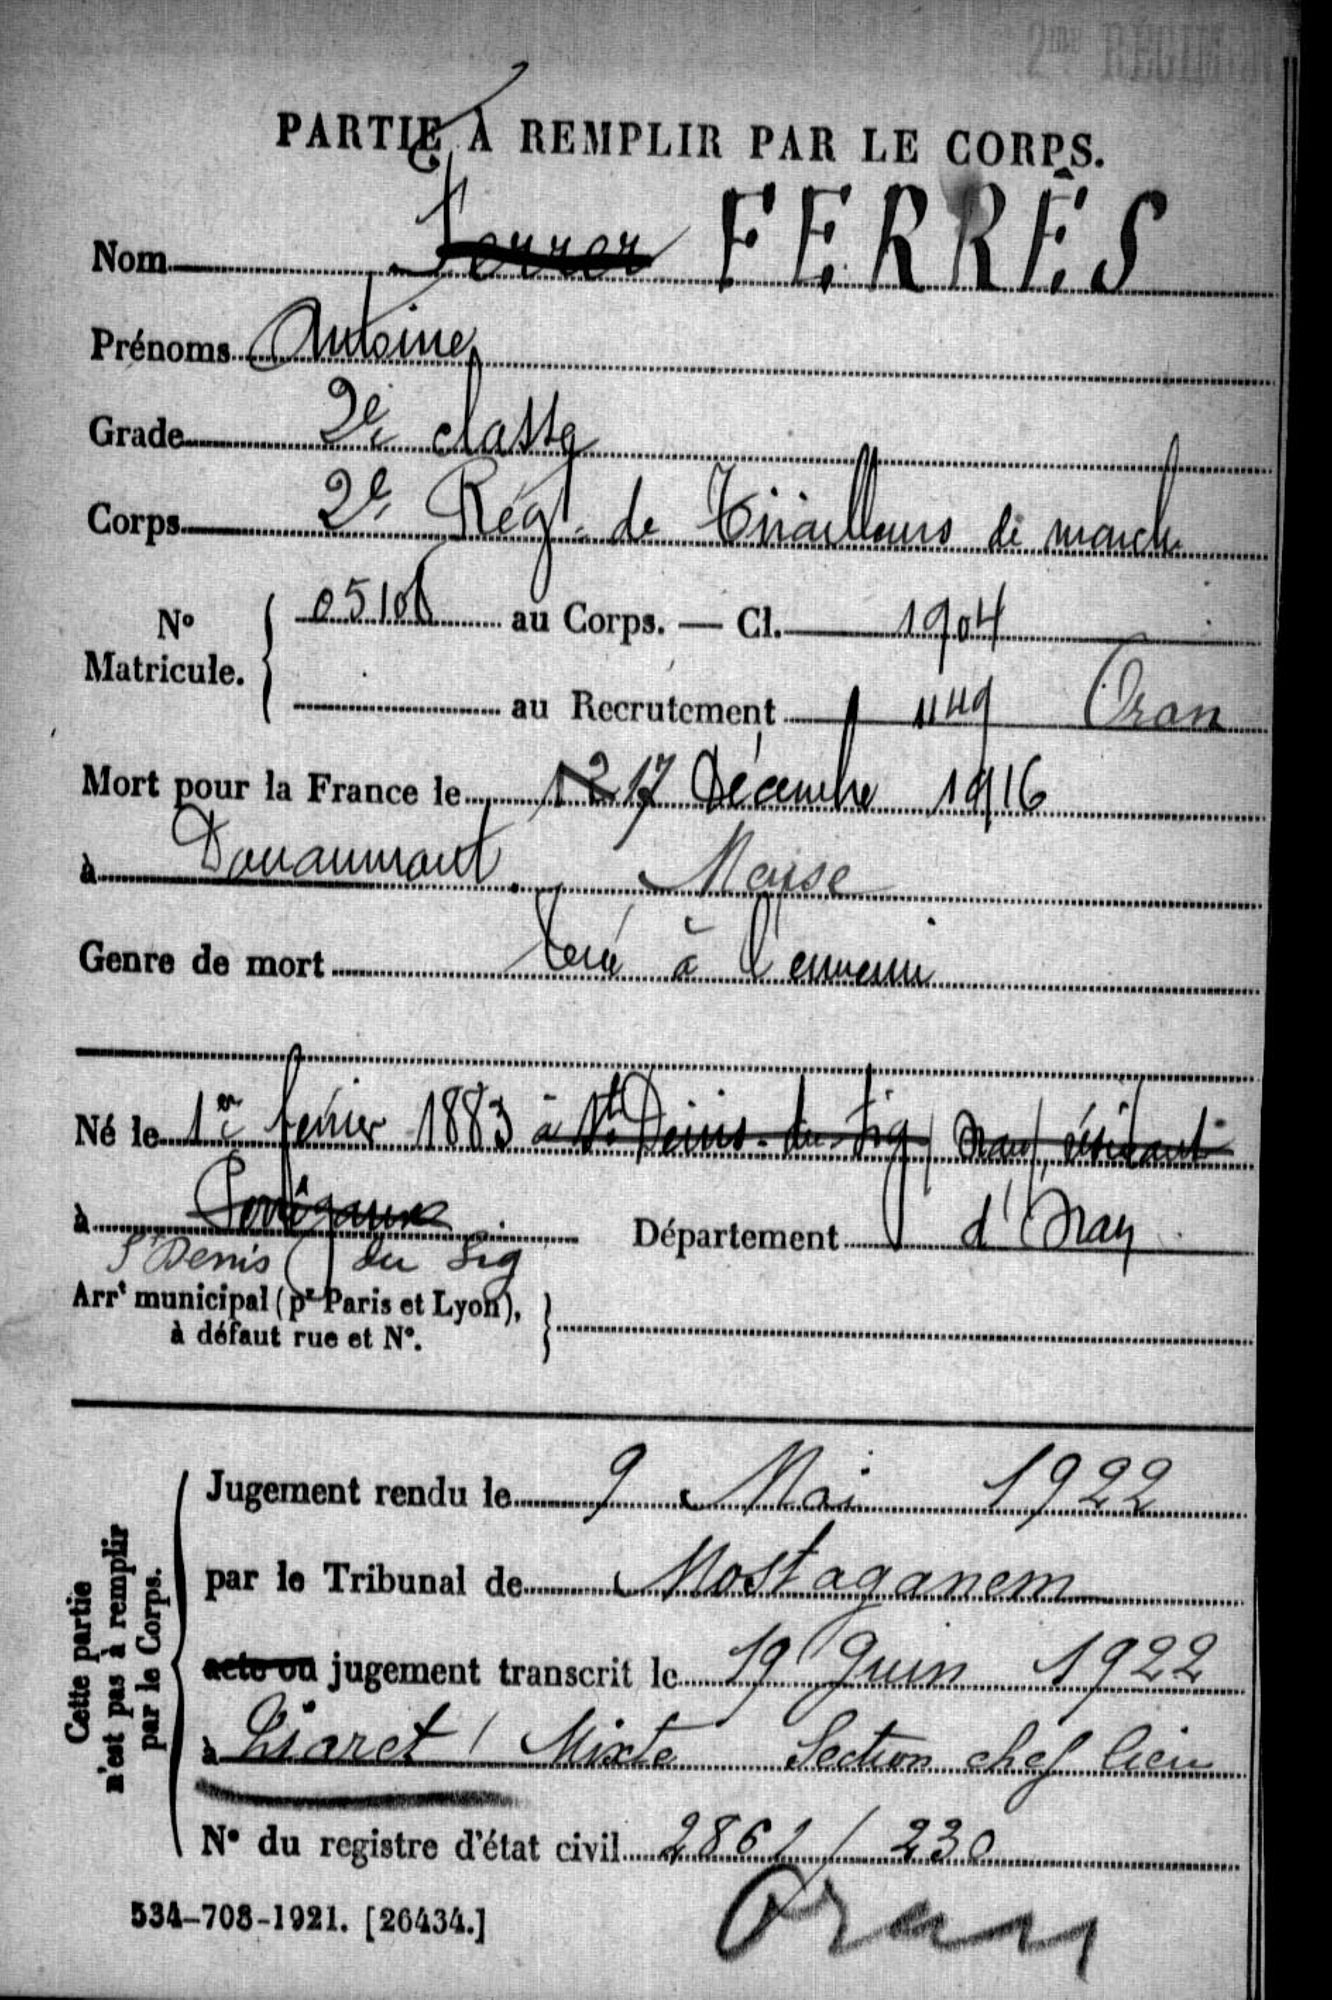 2me RÉGIME
PARTIE À REMPLIR PAR LE CORPS.
Nom Ferrer FERRÊS
Prénoms Antoine
Grade 2e classe
Corps 2e Régt de Tirailleurs de marche
No Matricule. 05106 au Corps. — Cl. 1904
au Recrutement 1149 Oran
Mort pour la France le 12 17 Décembre 1916
à Douaumont Meuse
Genre de mort tué à l'ennemi
Né le 1er février 1883 à St Denis-du-Sig Oran, résidant
à Perrégaux Département d'Oran
St Denis du Sig
Arrt municipal (pr Paris et Lyon),
à défaut rue et No.
Cette partie
n'est pas à remplir
par le Corps.
Jugement rendu le 9 Mai 1922
par le Tribunal de Mostaganem
acte ou jugement transcrit le 19 Juin 1922
à Tiaret Mixte Section chef lieu
No du registre d'état civil 2861 / 230
534-708-1921. [26434.]
Oran